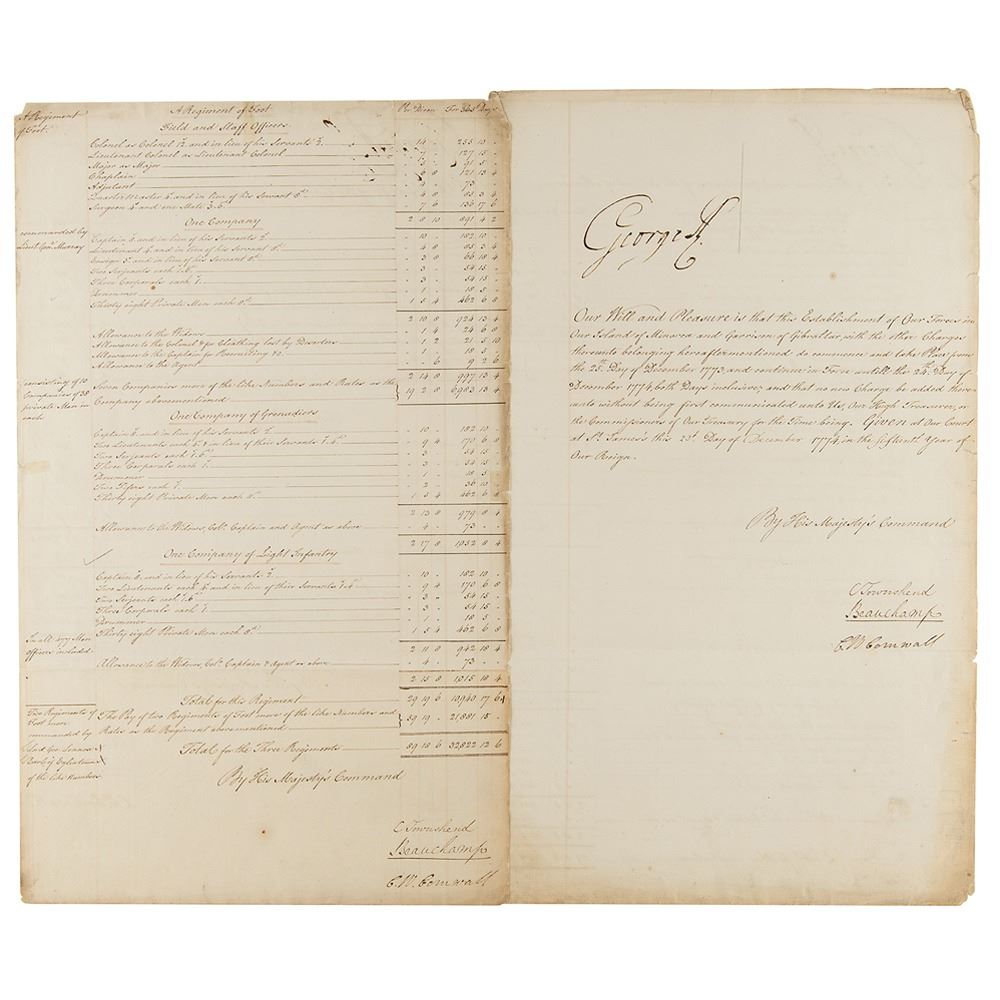 A Regiment of Foot
A Regiment of Foot Per Diem For 365 Days
Field and Staff Officers
Colonel as Colonel 12s. and in lieu of his Servants 2s. - 14 - 255 10 -
Lieutenant Colonel as Lieutenant Colonel - 7 - 127 15 -
Major as Major - 5 - 91 5 -
Chaplain - 6 8 121 13 4
Adjutant - 4 - 73 - -
Quarter Master 4s. and in lieu of his Servant 8d. - 4 8 85 3 4
Surgeon 4s. and one Mate 3s.6d. - 7 6 136 17 6
2 8 10 891 4 2
One Company
commanded by Lieut. Genl. Murray
Captain 8s. and in lieu of his Servants 2s. - 10 - 182 10 -
Lieutenant 4s. and in lieu of his Servant 8d. - 4 8 85 3 4
Ensign 3s. and in lieu of his Servant 8d. - 3 8 66 18 4
Two Serjeants each 1s.6d. - 3 - 54 15 -
Three Corporals each 1s. - 3 - 54 15 -
Drummer - 1 - 18 5 -
Thirty eight Private Men each 8d. 1 5 4 462 6 8
2 10 8 924 13 4
Allowance to the Widows - 1 4 24 6 8
Allowance to the Colonel & for Cloathing lost by Deserters - 1 2 21 5 10
Allowance to the Captain for Recruiting &c. - 1 - 18 5 -
Allowance to the Agent - - 6 9 2 6
2 14 8 997 13 4
consisting of 10 Companies of 38 private Men in each
Seven Companies more of the like Numbers and Rates as the
Company abovementioned 19 2 8 6983 13 4
One Company of Grenadiers
Captain 8s. and in lieu of his Servants 2s. - 10 - 182 10 -
Two Lieutenants each 4s. & in lieu of their Servants 1s.4d. - 9 4 170 6 8
Two Serjeants each 1s.6d. - 3 - 54 15 -
Three Corporals each 1s. - 3 - 54 15 -
Drummer - 1 - 18 5 -
Two Fifers each 1s. - 2 - 36 10 -
Thirty eight Private Men each 8d. 1 5 4 462 6 8
2 13 8 979 8 4
Allowance to the Widows, Colo. Captain and Agent as above - 4 - 73 - -
2 17 8 1052 8 4
One Company of Light Infantry
Captain 8s. and in lieu of his Servants 2s. - 10 - 182 10 -
Two Lieutenants each 4s. and in lieu of their Servants 1s.4d. - 9 4 170 6 8
Two Serjeants each 1s.6d. - 3 - 54 15 -
Three Corporals each 1s. - 3 - 54 15 -
Drummer - 1 - 18 5 -
Thirty eight Private Men each 8d. 1 5 4 462 6 8
In all 477 Men Officers included
2 11 8 942 18 4
Allowance to the Widows, Colo. Captain & Agent as above - 4 - 73 - -
2 15 8 1015 18 4
Total for this Regiment 29 19 6 10940 17 6
Two Regiments of Foot more commanded by
The Pay of two Regiments of Foot more of the like Numbers and
Rates as the Regiment abovementioned 59 19 - 21881 15 -
of the like Numbers.
Total for the Three Regiments 89 18 6 32822 12 6
By His Majesty's Command
C Townshend
Beauchamp
C. W. Cornwall
George R.
Our Will and Pleasure is that this Establishment of Our Forces in
Our Island of Minorca and Garrison of Gibraltar, with the other Charges
thereunto belonging hereaftermentioned do commence and take Place from
the 25th. Day of December 1773, and continue in Force untill the 24th. Day of
December 1774, both Days inclusive; and that no new Charge be added there-
unto without being first communicated unto Us, Our High Treasurer, or
the Commissioners of Our Treasury for the Time being. Given at Our Court
at St. James's this 23d. Day of December 1774, in the fifteenth Year of
Our Reign.
By His Majesty's Command
C Townshend
Beauchamp
C. W. Cornwall